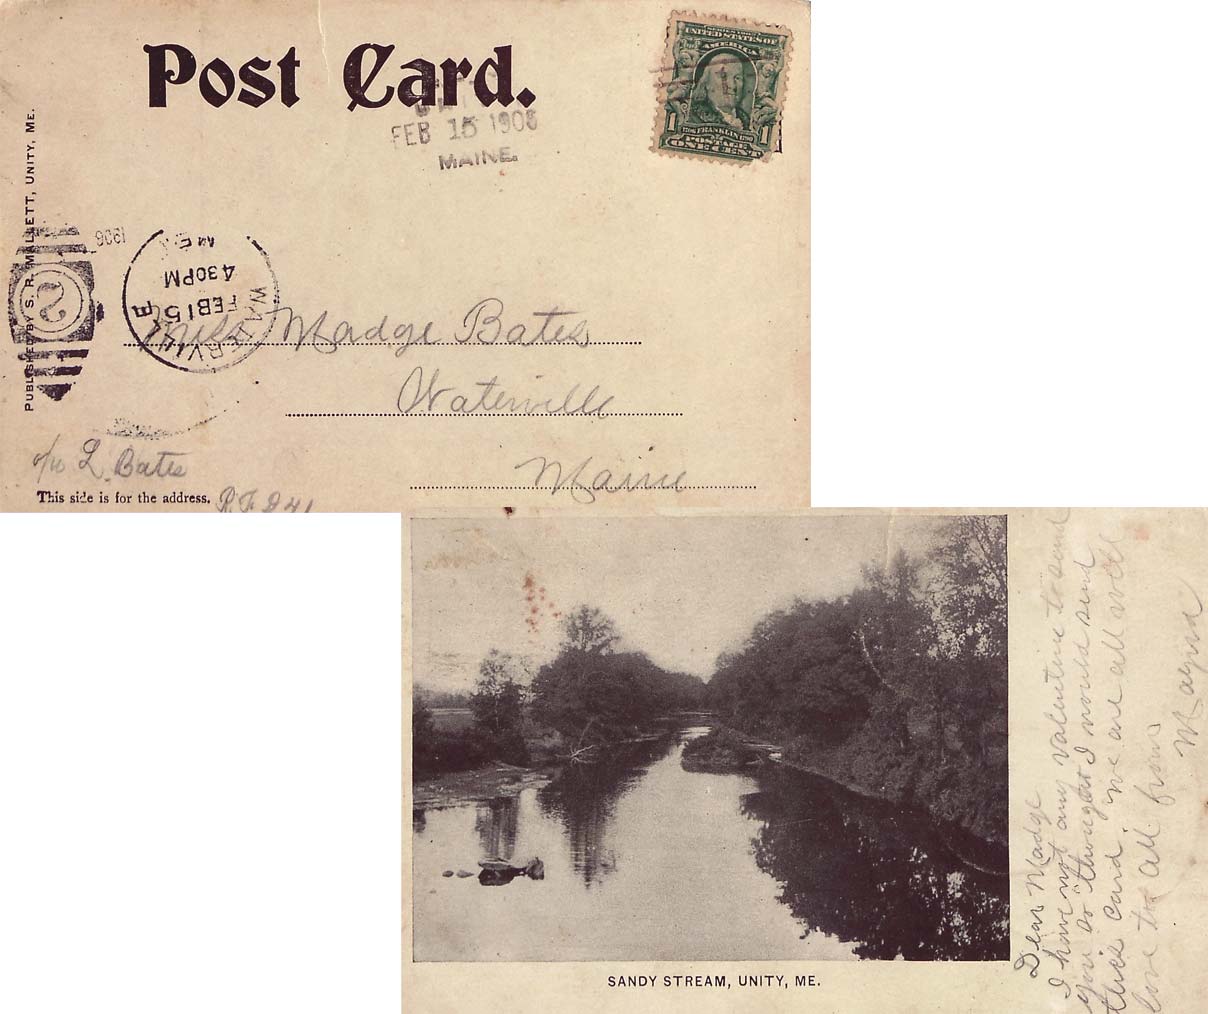 Post Card.
UNITY
FEB 15 1906
MAINE.
SERIES 1902
UNITED STATES OF
AMERICA
1 1706 FRANKLIN 1790 1
POSTAGE
ONE CENT
PUBLISHED BY S. R. MALLETT, UNITY, ME.
1906
WATERVILLE
FEB 15
430PM
ME.
2
Miss Madge Bates
Waterville
Maine
c/o L. Bates
This side is for the address.
R.F.D 41
Dear Madge
I have not any valentine to send
you so thought I would send
this card we are all well
love to all from
Magna
SANDY STREAM, UNITY, ME.